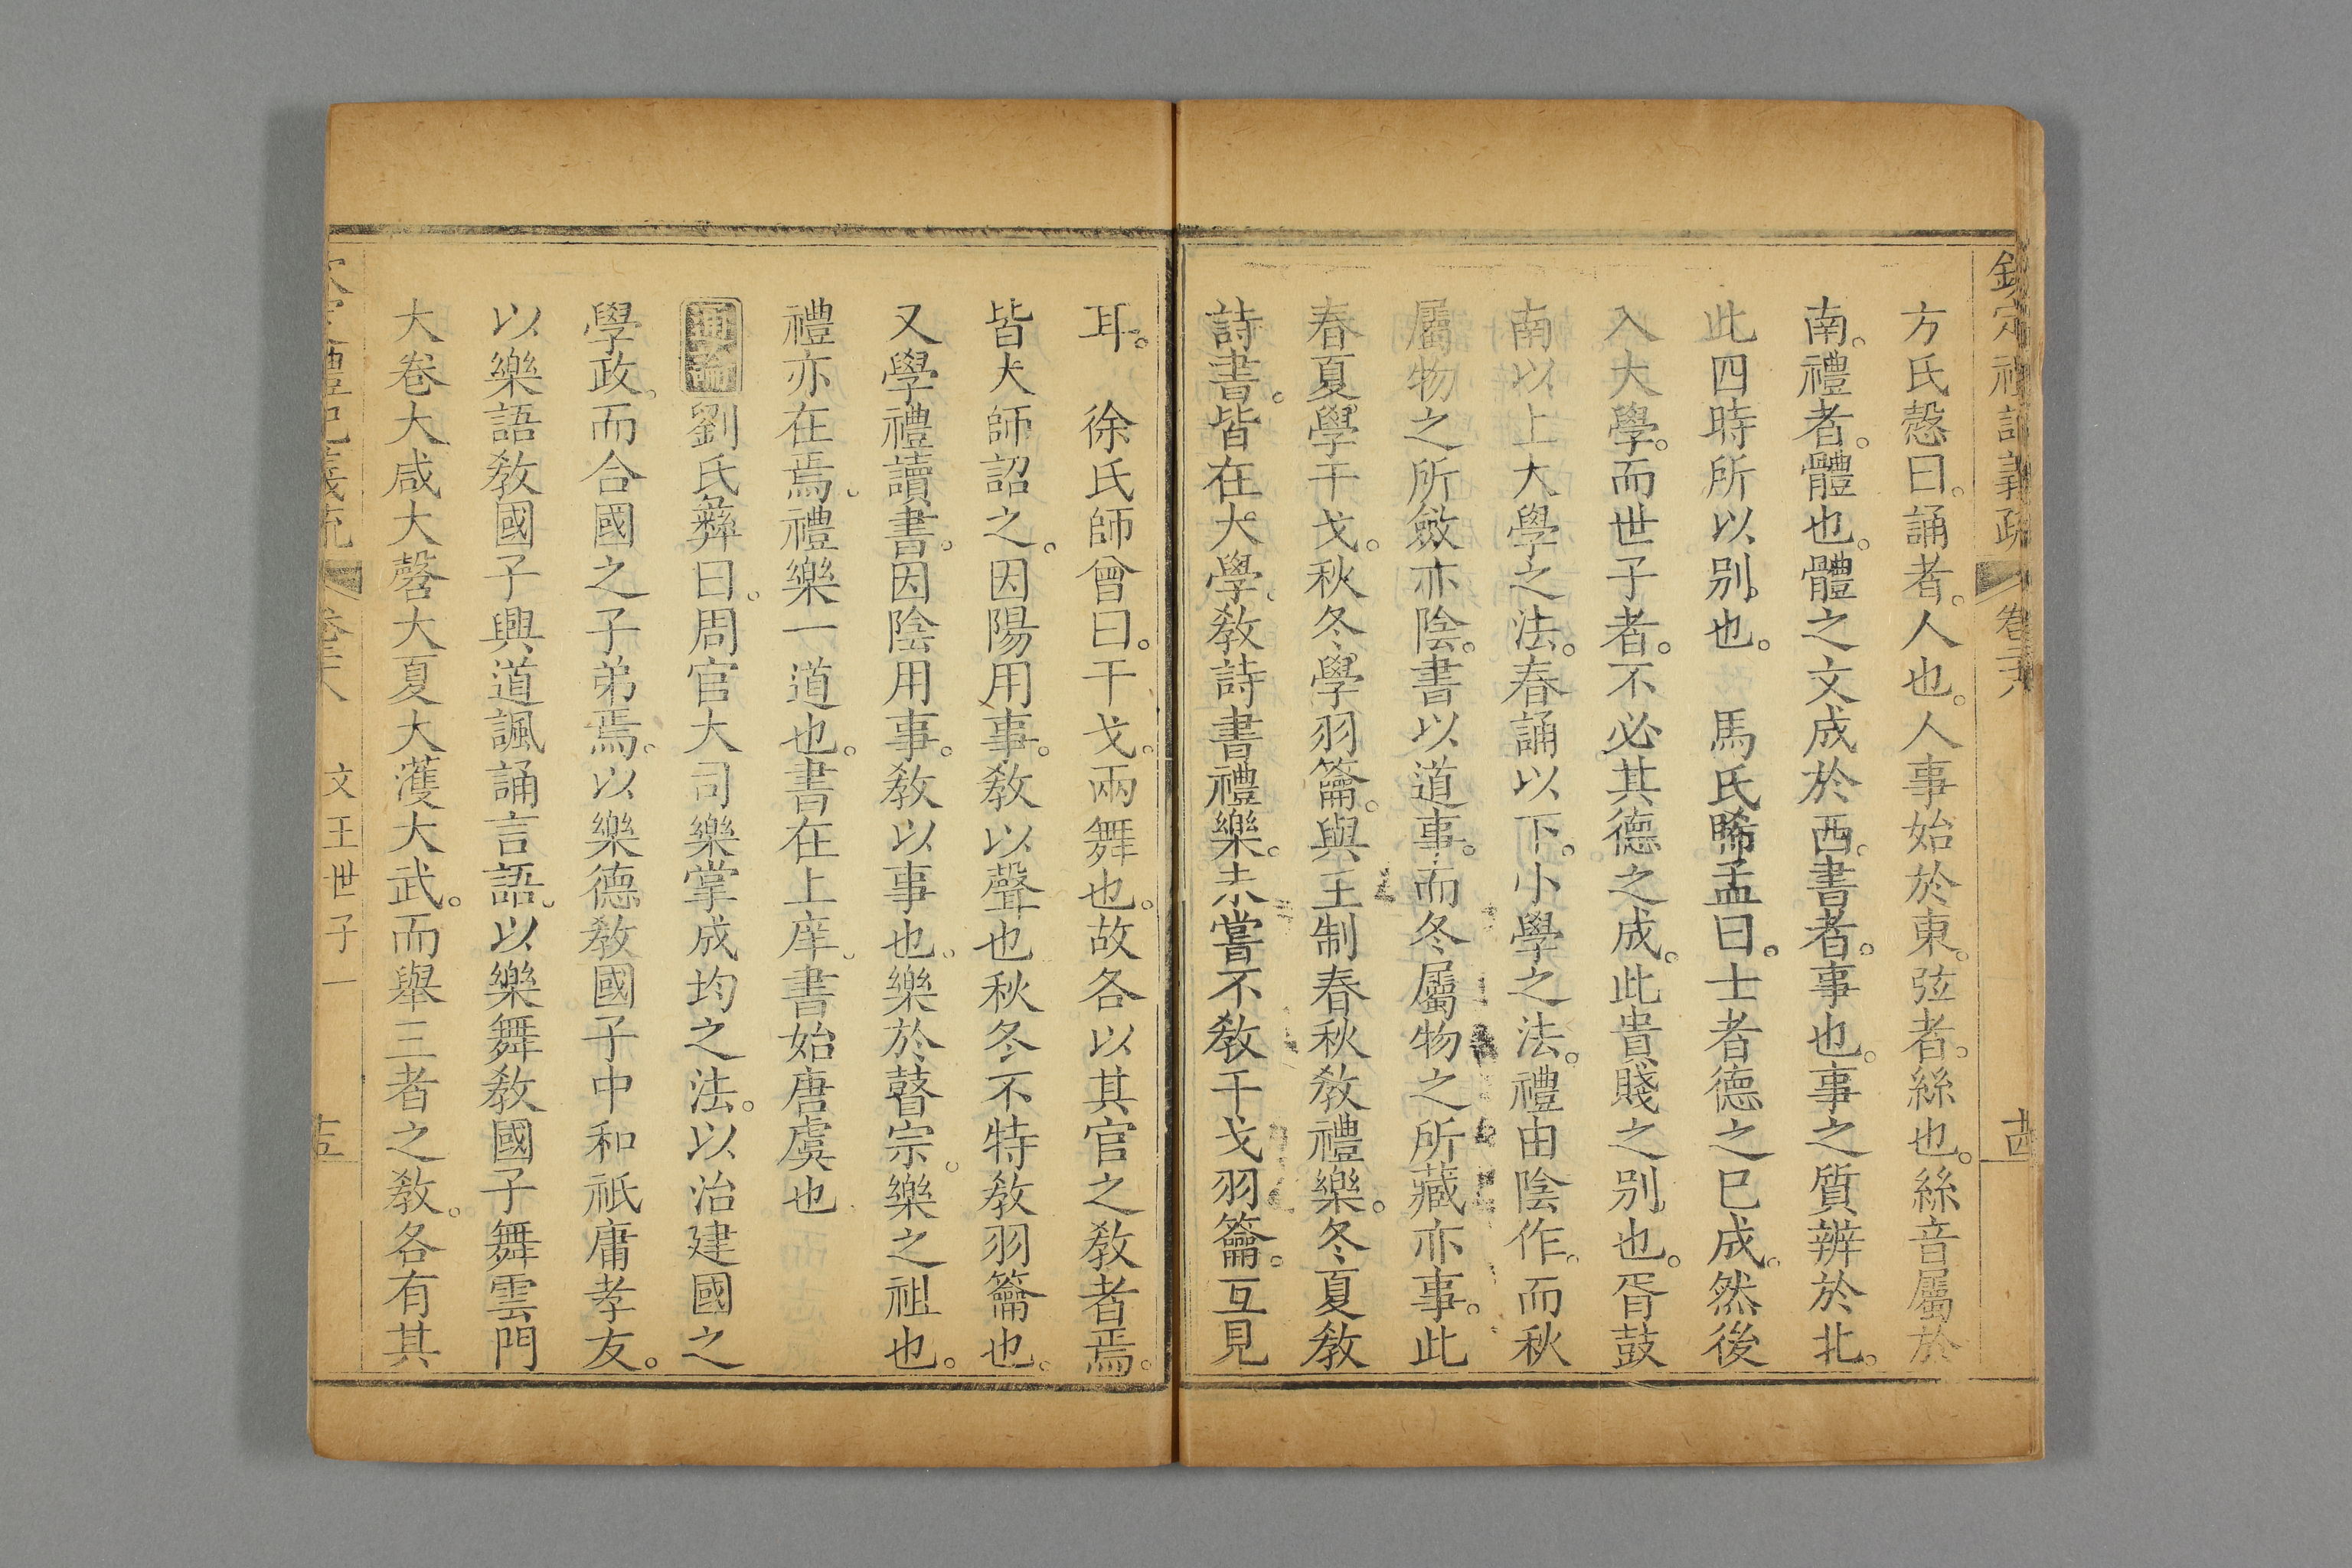 欽定禮記義疏 卷二十八 十四
方氏慤曰。誦者。人也。人事始於東。弦者。絲也。絲音屬於
南。禮者。體也。體之文成於西。書者。事也。事之質辨於北。
此四時所以别也。 馬氏睎孟曰。士者德之巳成。然後
入大學。而世子者。不必其德之成。此貴賤之别也。胥鼓
南以上大學之法。春誦以下。小學之法。禮由陰作。而秋
屬物之所斂亦陰。書以道事。而冬屬物之所藏亦事。此
春夏學干戈。秋冬學羽籥。與王制春秋教禮樂。冬夏教
詩書。皆在大學。教詩書禮樂。未嘗不教干戈羽籥。互見
耳。 徐氏師曾曰。干戈。兩舞也。故各以其官之教者焉。
皆大師詔之。因陽用事。教以聲也秋冬不特教羽籥也。
又學禮讀書。因陰用事。教以事也。樂於瞽宗。樂之祖也。
禮亦在焉。禮樂一道也。書在上庠。書始唐虞也
通論 劉氏彝曰。周官大司樂掌成均之法。以治建國之
學政。而合國之子弟焉。以樂德教國子中和祇庸孝友。
以樂語教國子興道諷誦言語。以樂舞教國子舞雲門
大卷大咸大磬大夏大濩大武。而舉三者之教。各有其
欽定禮記義疏 卷二十八 文王世子一 十五